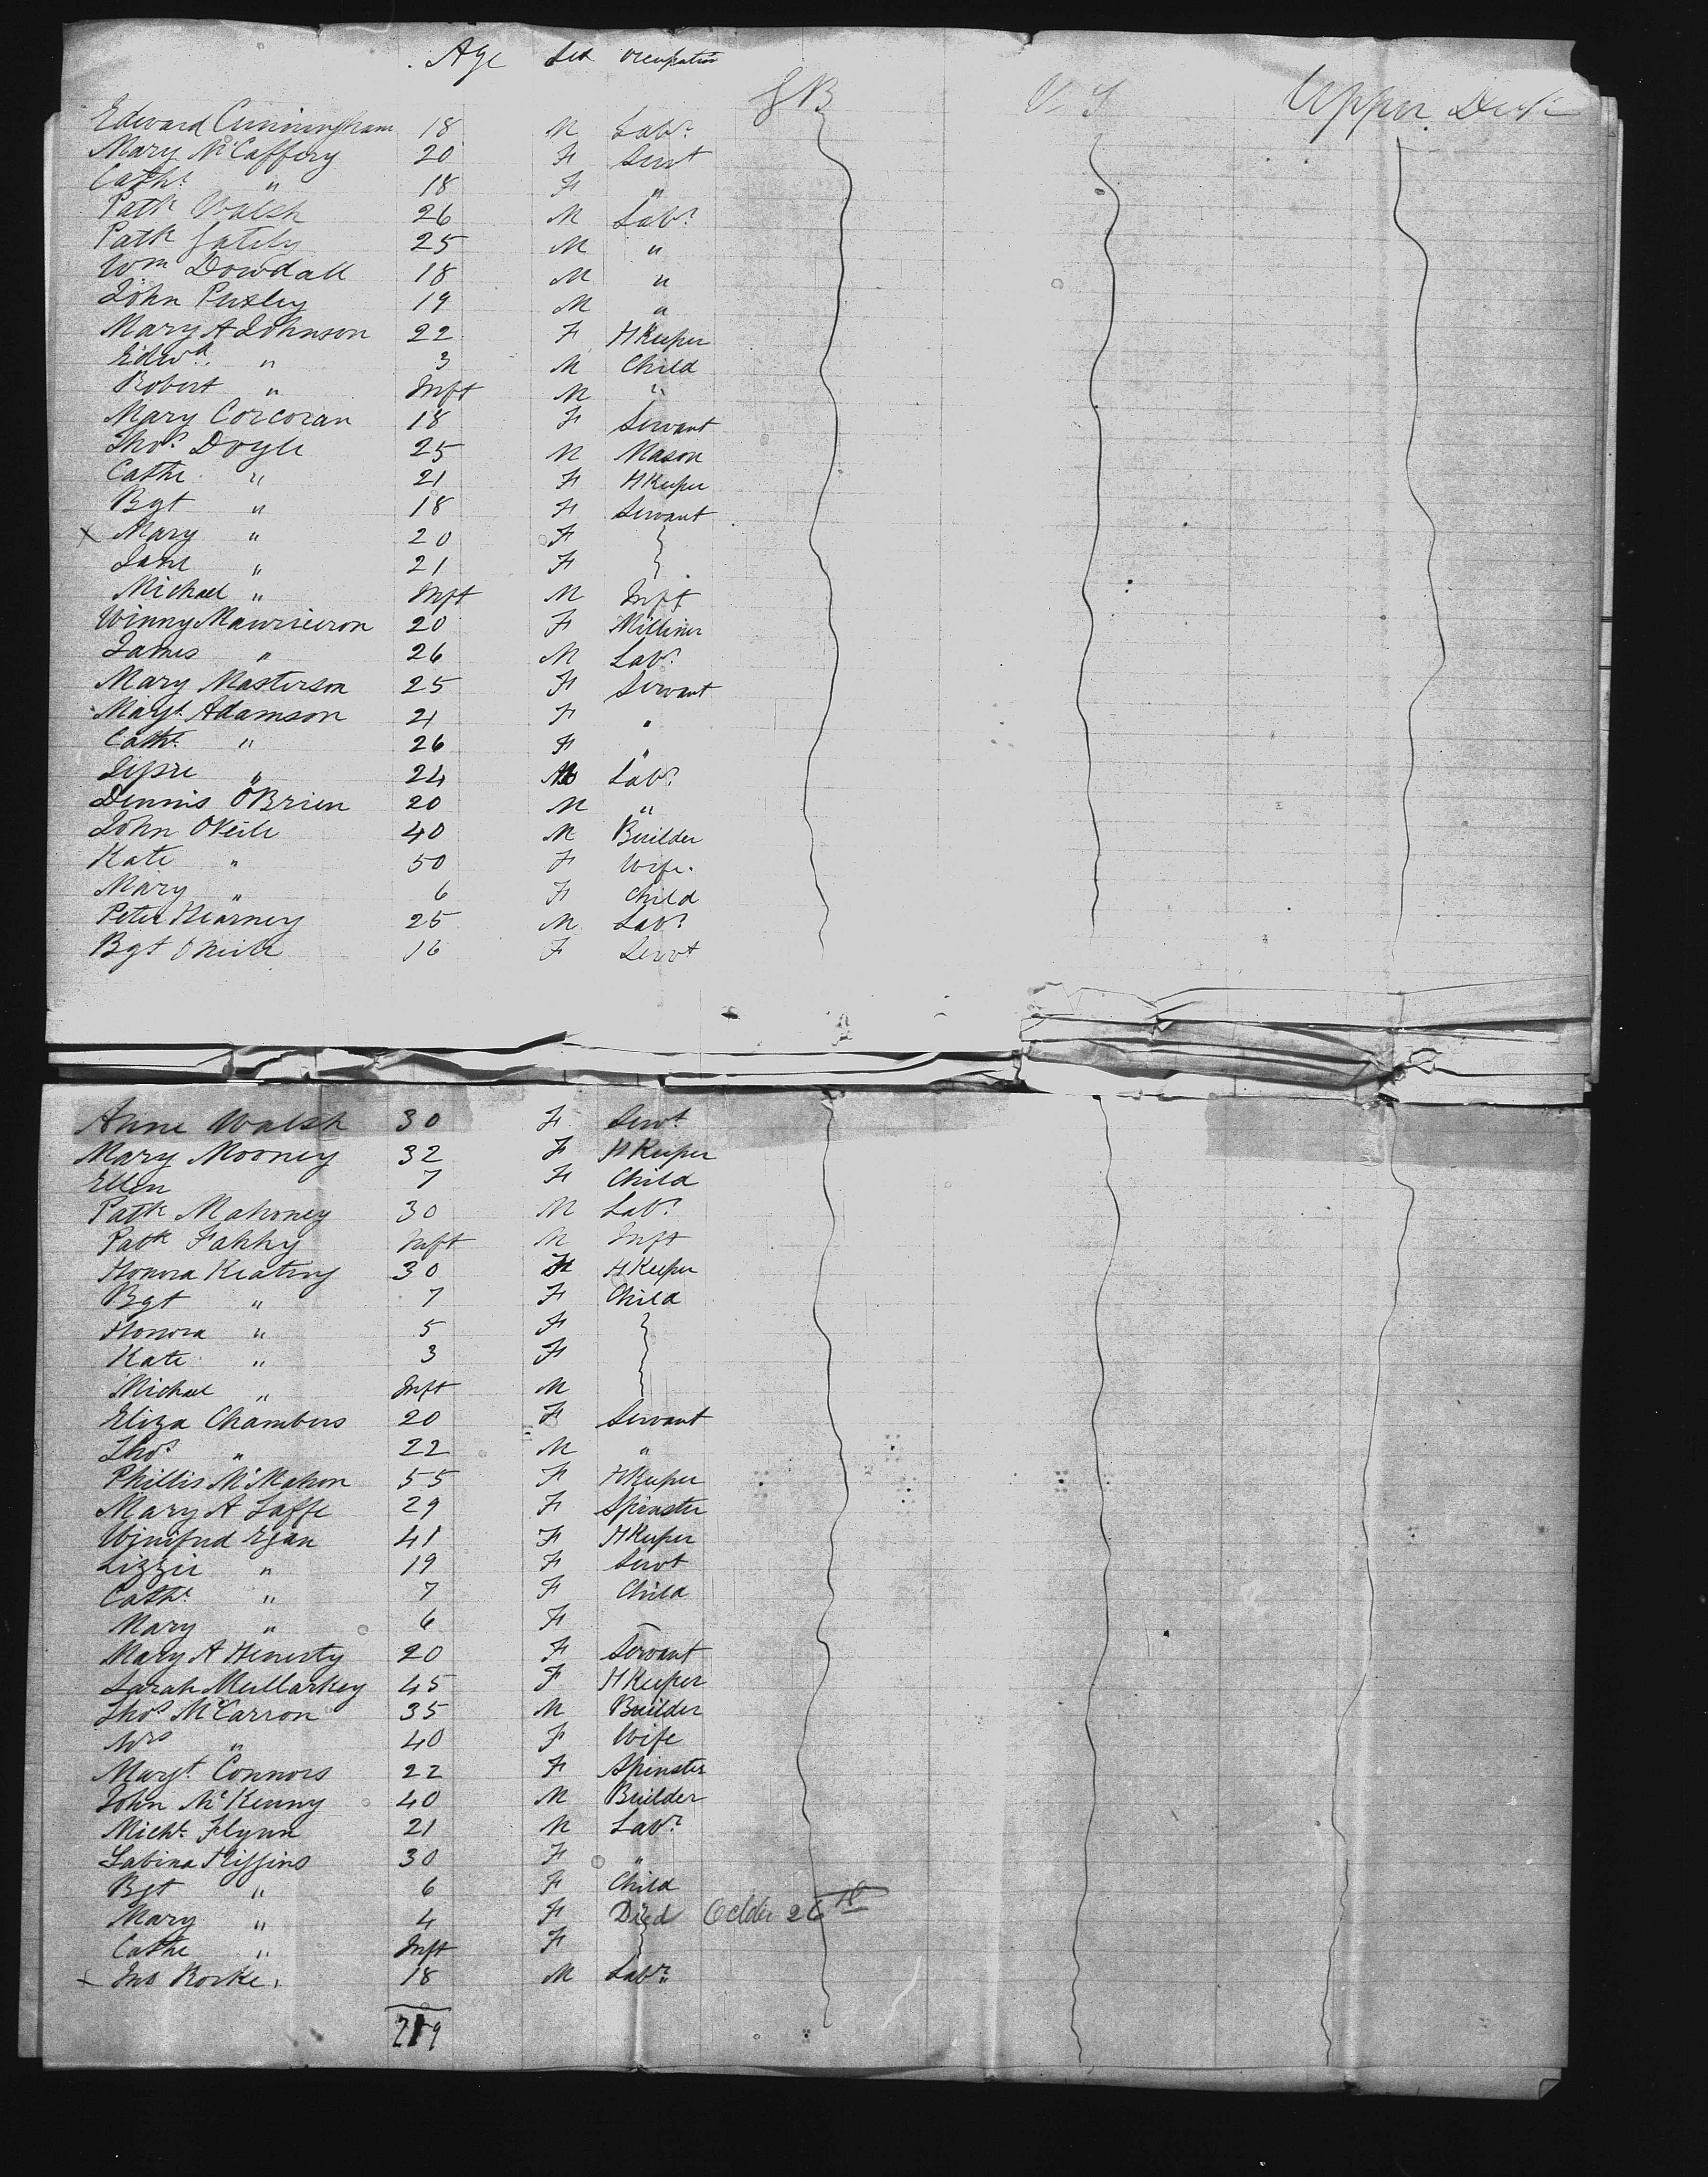 Age Sex Occupation
GB U.S Upper Deck
Edward Cunningham 18 M Labr
Mary McCaffery 20 F Servt
Cathe " 18 F "
Patk Walsh 26 M Labr
Patk Gately 25 M "
Wm Dowdall 18 M "
John Puxley 19 M "
Mary A Johnson 22 F HKeeper
Edwd " 3 M Child
Robert " Inft M "
Mary Corcoran 18 F Servant
Thos Doyle 25 M Mason
Cathe " 21 F HKeeper
Bgt " 18 F Servant
x Mary " 20 F
Jane " 21 F
Michael " Inft M Inft
Winny 20 F Milliner
James " 26 M Labr
Mary Masterson 25 F Servant
Margt Adamson 21 F "
Cathe " 26 F "
24 M Labr
Dennis O'Brien 20 M "
John O'Neile 40 M Builder
Kate " 50 F Wife
Mary " 6 F Child
Peter Kearney 25 M Labr
Bgt O'Neile 16 F Servt
Anne Walsh 30 F Servt
Mary Mooney 32 F HKeeper
Ellen 7 F Child
Patk Mahoney 30 M Labr
Patk Fahhy Inft M Inft
Honora Keating 30 F HKeeper
Bgt " 7 F Child
Honora " 5 F
Kate " 3 F
Michael " Inft M
Eliza Chambers 20 F Servant
Thos " 22 M "
Phillis McMahon 55 F HKeeper
Mary A Jaffe 29 F Spinster
Winifred Egan 41 F HKeeper
Lizzie " 19 F Servt
Cathe " 7 F Child
Mary " 6 F
Mary A Henesty 20 F Servant
Sarah Mullarkey 45 F HKeeper
Thos McCarron 35 M Builder
Mrs " 40 F Wife
Margt Connors 22 F Spinster
John McKenny 40 M Builder
Michl Flynn 21 M Labr
Sabina Higgins 30 F "
Bgt " 6 F Child
Mary " 4 F Died October 26th
Cathe " Inft F
x Jno Rorke 18 M Labr
219